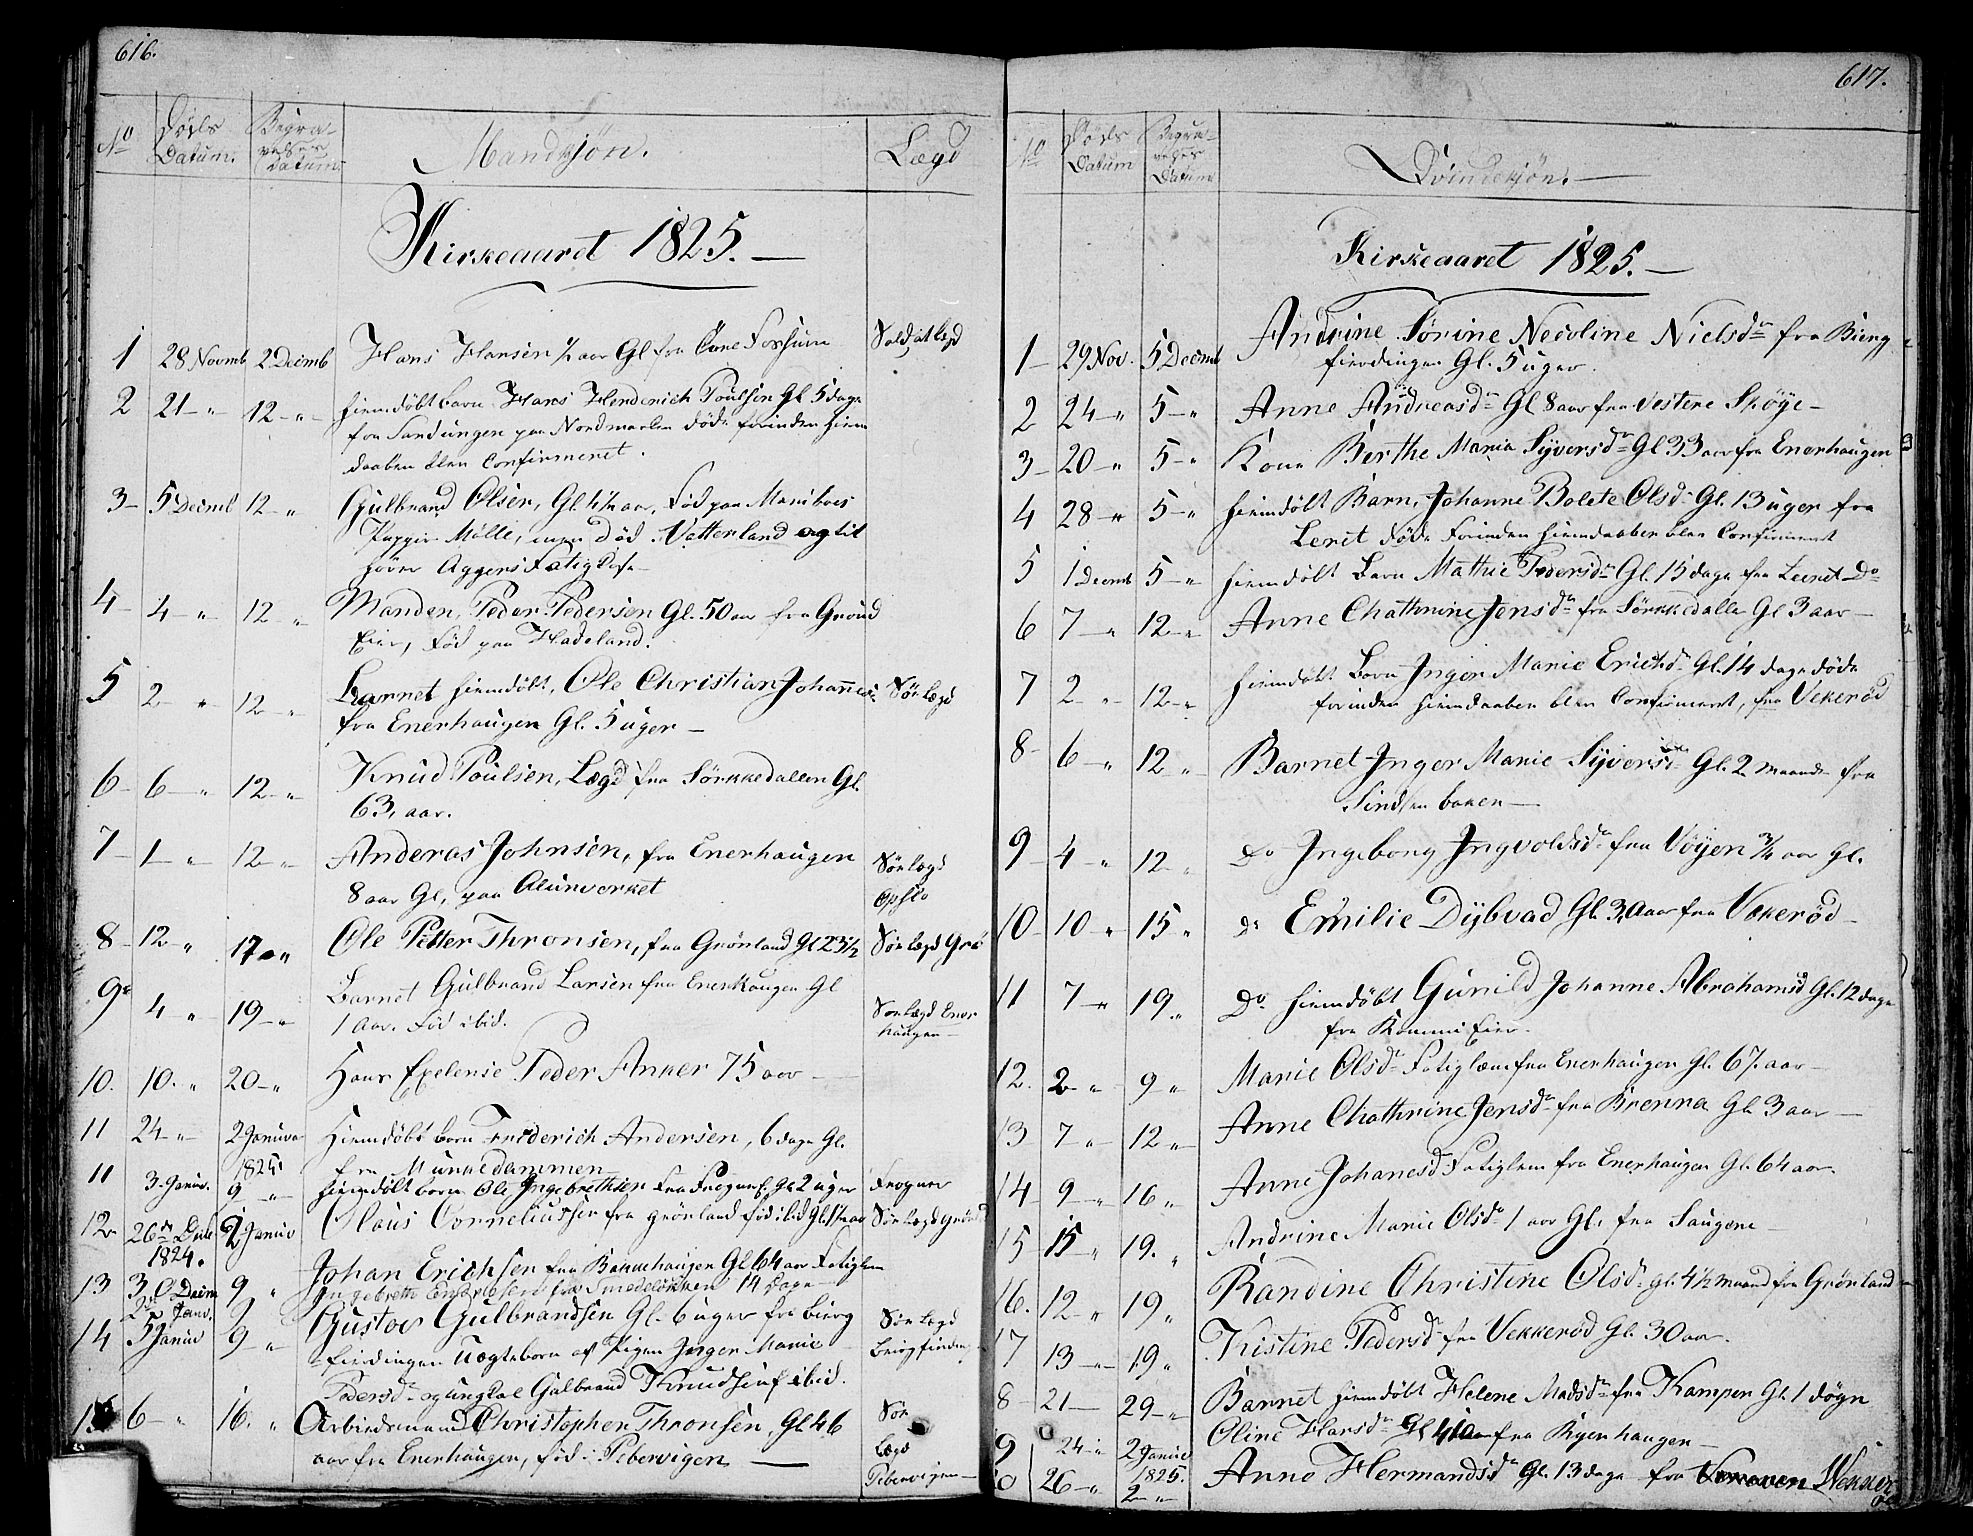 616.
No Døds Datum. Begra-velses Datum Mandkjøn. Lægd
Kirkeaaret 1825. —
1 28 Novmb 2 Decmb Hans Hansen ½ aar Gl fra Fossum Soldatlegd
2 21 — " 12 — " hiemdøbt barn Hans Henderich Poulsen Gl 5 dage
fra Sandungen paa Nordmarken døde forinden hiem
daaben blev Confirmeret.
3 — 5 Decmb 12 — " Gulbrand Olsen, Gl aar, Fød paa
Mølle, men død Vetterland og til
hører Aggers Fatig
4 — 4 — " 12 — " Manden, Peder Pedersen Gl. 50 aar fra Grønd
Eier, Fød paa Hadeland.
5 2 — " 12 — " Barnet hiemdøbt, Ole Christian Johannes: Sørlægd
fra Enerhaugen Gl. 5 uger —
6 — 6 — " 12 — " Knud Poulsen, Lægd fra Sørkkedallen Gl.
63, aar.
7 — 1 — " 12 — " Anderas Johnsen, fra Enerhaugen Sørlægd
8 aar Gl, paa Alunverket Opslo
8 — 12 — " 17 — " Ole Petter Thronsen, fra Grønland Gl 23½ Sørlægd, Grø
9 4 — " 19 — " Barnet Gulbrand Larsen fra Enerhaugen Gl
1 Aar. Fød ibid. Sørlægd Ener
haugen —
10. 10. " 20 — " Hans Exelense Peder Anker 75 aar —
11 24 — " 2 Januar Hiemdøbt barn Friderich Andersen, 6 dage Gl.
1825 fra Munkedammen
11 3. Januv. 9 — " hiemdøbt barn Ole Ingebrethsen fra Gl 2 uger Frogner
12 — 26 Decb 2 Januv Olaus Corneliussen fra Grønland fød ibid Gl aar Sørlægd Grønl
1824.
13 30 Decm 9 " Johan Erichsen fra Bakkehaugen Gl 64 aar Fatiglem
25 Janv. 9 Ingebrette fra Smedeløkken 14 Dage
14 5 Januv 9 — " Gustav Gulbrandsen Gl. 6 uger fra Bierg Sørlægd
fierdingen Uægtebarn af Pigen Inger Marie
Pedersd og Ungkal Gulbrand Knudsen ibid.
15 6 — " 16. " Arbeidsmand Christopher Thronsen, Gl 46 Sør
aar fra Enerhaugen, fød: Pebervigen — Lægd
Pebervigen —
617.
No Døds Datum Begra-velses Datum Qvindekjøn. —
Kirkeaaret 1825. —
1 — 29 Nov. 5 Decmb Andrine Sørine Necoline Nielsdr fra Bierg
fierdingen Gl. 5 uger
2 24 — " 5 — " Anne Andreasdr Gl 8 aar fra Vestere Skøye —
3 — 20 — " 5 — " Kona Berthe Maria Syversdr Gl 33 aar fra Enerhaugen
4 28 — " 5 — " hiemdøbt Barn, Johanne Bolete Olsd Gl. 13 uger fra
Leret døde forinden hiemdaaben blev Confirmeret
5 1 Decmb 5 — " hiemdøbt Barn Mathie Pedersdr Gl. 15 dage fra Leeret Do
6 7 — " 12 — " Anne Chathrine Jensdr fra Sørkkedalle Gl 3 aar —
7 2 — " 12 — " hiemdøbt Barn Inger Marie Erichsd Gl. 14 dage døde
forinden hiemdaaben blev Confirmeret, fra Vekerød
8 — 6 " 12 " Barnet Inger Marie Syversd Gl. 2 maande fra
Sindsen baken —
9 — 4 " 12 " Do Ingeborg Ingvoldsdr fra Vøyen ¾ aar Gl.
10 — 10 " 15 " do Emilie Dybvad Gl 3 Aar fra Vekerød —
11 7 — " 19 " Do hiemdøbt Gunild Johanne Abrahamsd Gl. 12 dage
fra Eier.
12. 2 — " 9 " Marie Olsd Fatiglem fra Enerhaugen Gl. 67. aar —
13 7 — " 12 — " Anne Chathrine Jensdr fra Brenna Gl 3 aar —
14 — 9 " 16 " Anne Johanesd Fatiglem fra Enerhaugen Gl. 64 aar.
15 15 " 19. " Andrine Marie Olsdr 1 aar Gl. fra Saugene —
16. 12 — " 19 " Randine Christine Olsd Gl. 4½ Maand fra Grønland
17 13 — " 19 " Kristine Pedersdr fra Vekkerød Gl. 30 aar.
8 — 21 — 29 — " Barnet hiemdøbt Helene Madsdr fra Kampen Gl. 1 døgn
9 24 — " 2 Januv Oline Hansdr Gl fra Bierhaugen —
1825.
0 26 — " 2 — " Anne Hermandsdr Gl. 13 dage fra